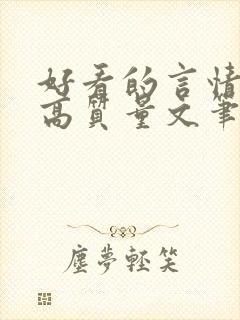 好看的言情
高質量文筆
塵夢輕笑